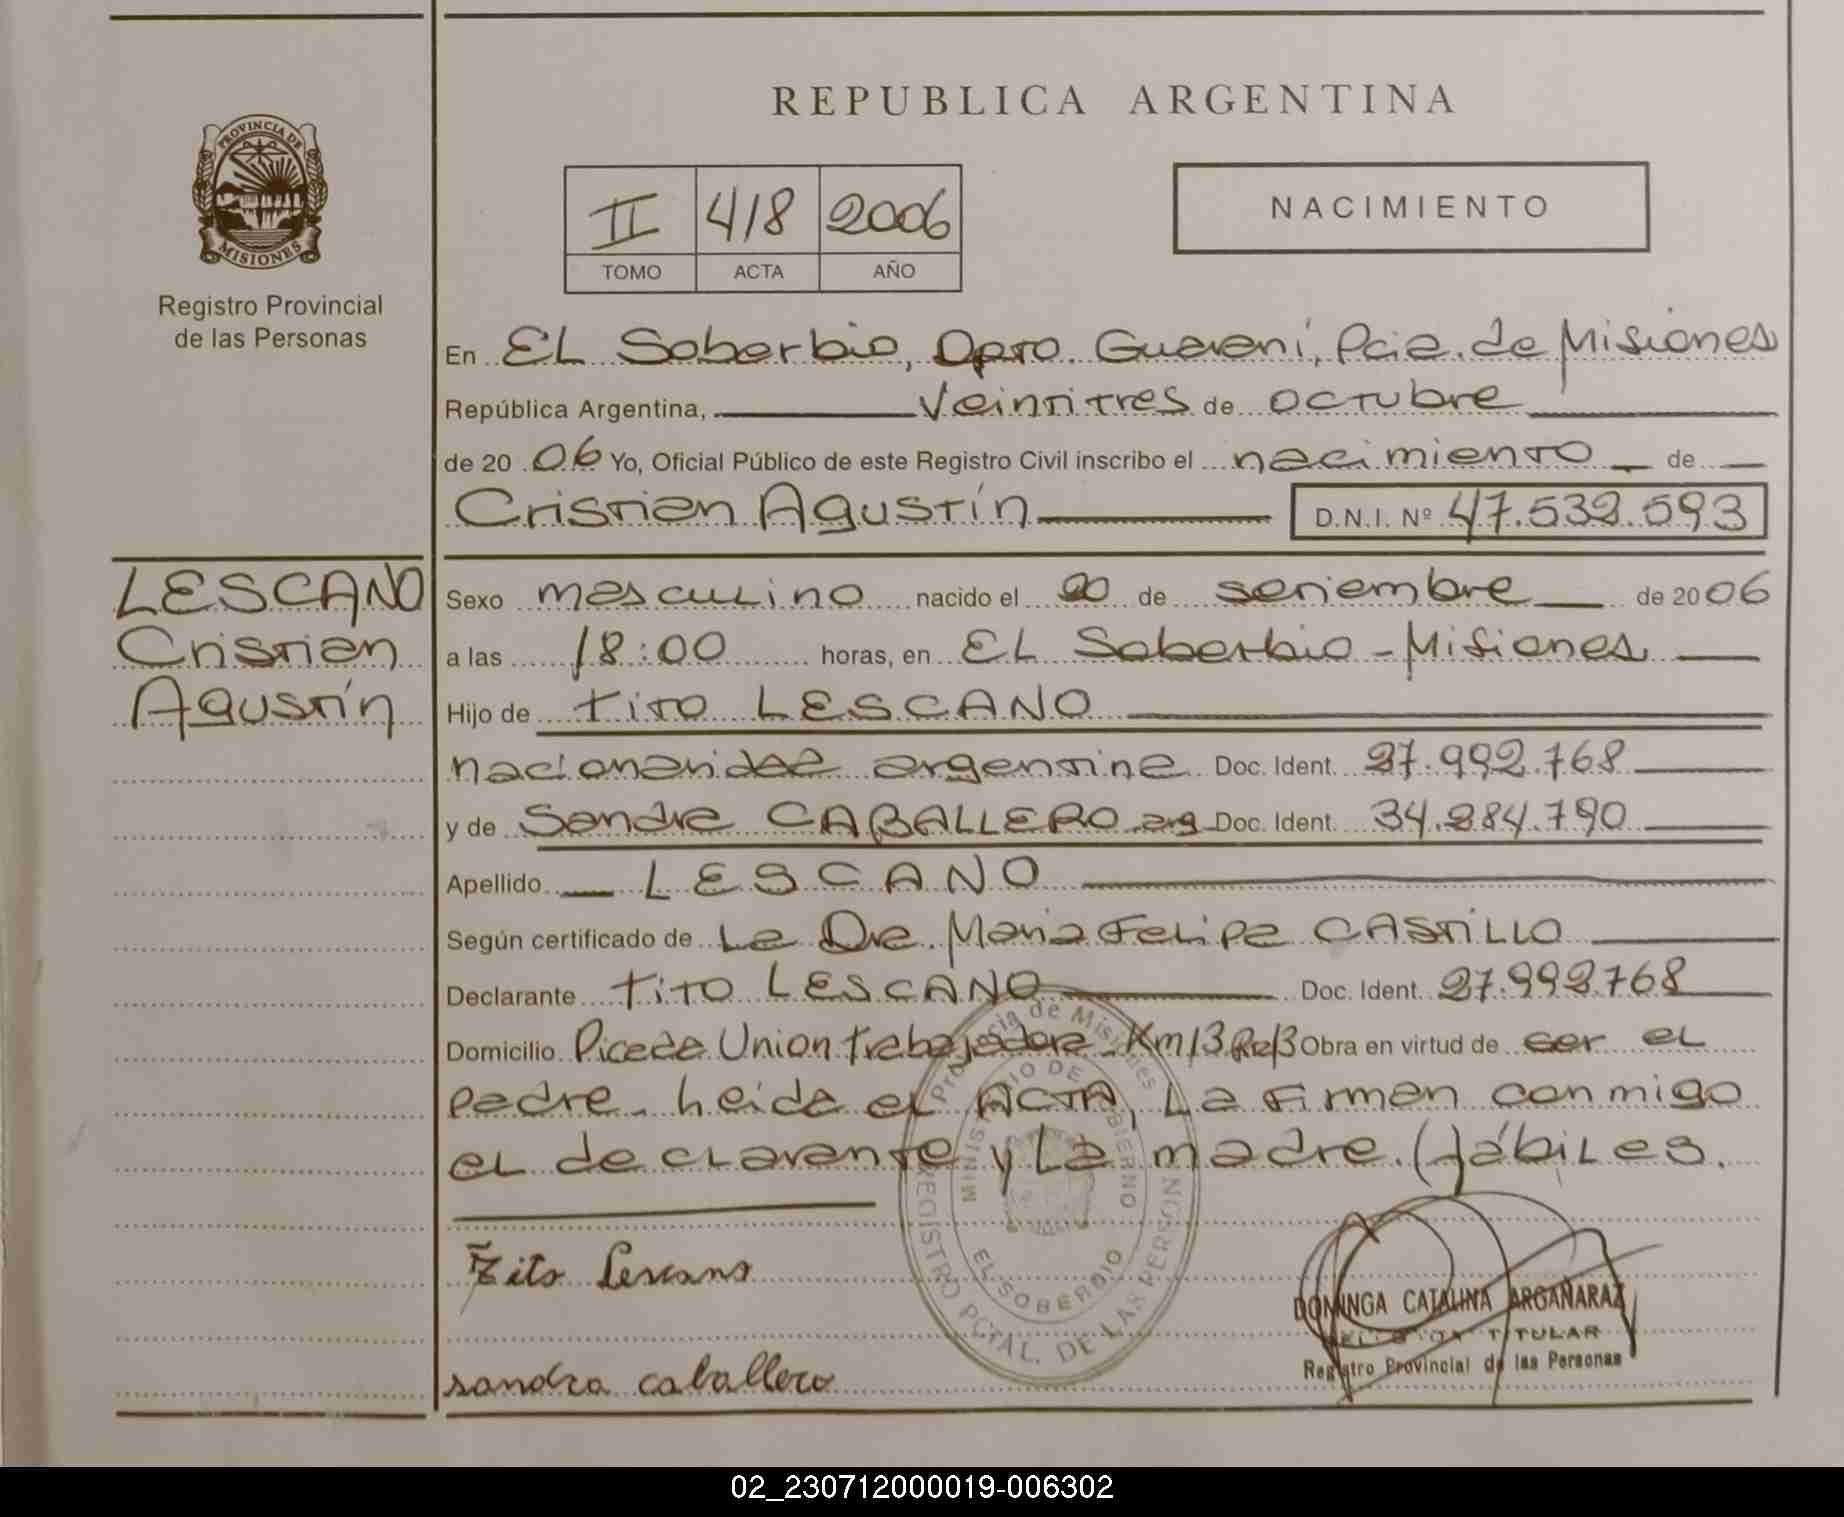 REPUBLICA ARGENTINA
PROVINCIA DE
MISIONES
Registro Provincial
de las Personas
II 418 2006
TOMO ACTA AÑO
NACIMIENTO
En El Soberbio, Dpto. Guaraní, Pcia. de Misiones
República Argentina, Veintitres de octubre
de 2006 Yo, Oficial Público de este Registro Civil inscribo el nacimiento de
Cristian Agustín D.N.I. Nº 47.532.593
LESCANO
Cristian
Agustín
Sexo masculino nacido el 20 de setiembre de 2006
a las 18:00 horas, en El Soberbio - Misiones
Hijo de Tito LESCANO
nacionalidad argentina Doc. Ident. 27.992.768
y de Sandra CABALLERO arg Doc. Ident. 34.284.790
Apellido LESCANO
Según certificado de La Dra. Maria Felipa CASTILLO
Declarante Tito LESCANO Doc. Ident. 27.992768
Domicilio Picada Union Trabajadora Km 13 Obra en virtud de ser el
padre. Leida el ACTA, La firman conmigo
el declarante y La madre. Hábiles.
Tito Lescano
sandra caballero
Provincia de Misiones
MINISTERIO DE GOBIERNO
EL SOBERBIO
REGISTRO PCIAL. DE LAS PERSONAS
DOMINGA CATALINA ARGAÑARAZ
TITULAR
Registro Provincial de las Personas
02_230712000019-006302